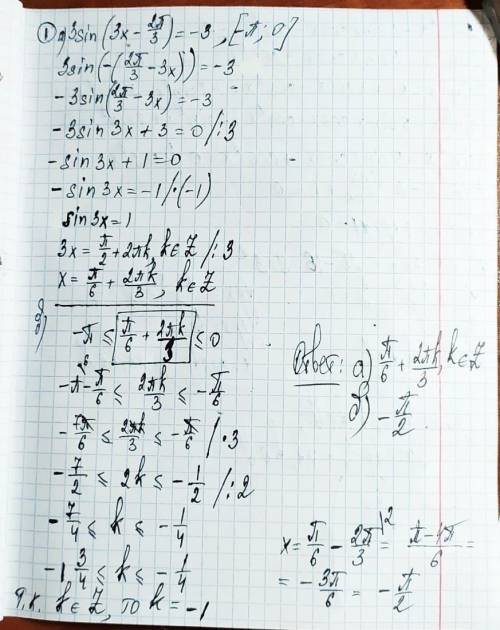 ① а) 3sin(3x - 2π/3) = -3, [-π; 0]
3sin(-(2π/3 - 3x)) = -3
-3sin(2π/3 - 3x) = -3
-3sin 3x + 3 = 0 /:3
-sin 3x + 1 = 0
-sin 3x = -1 /·(-1)
sin 3x = 1
3x = π/2 + 2πk, k∈Z /:3
x = π/6 + 2πk/3, k∈Z
б) -π ≤ π/6 + 2πk/3 ≤ 0
-π - π/6 ≤ 2πk/3 ≤ -π/6
-7π/6 ≤ 2πk/3 ≤ -π/6 /·3
-7/2 ≤ 2k ≤ -1/2 /:2
-7/4 ≤ k ≤ -1/4
-1 3/4 ≤ k ≤ -1/4
Т.к. k∈Z, то k = -1
Ответ: а) π/6 + 2πk/3, k∈Z
б) -π/2
x = π/6 - 2π/3 = π-4π/6 =
= -3π/6 = -π/2